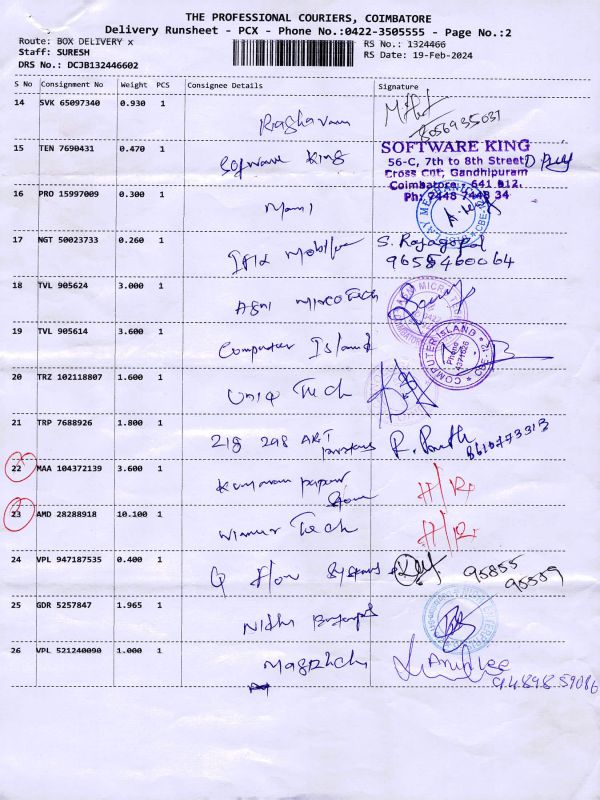 THE PROFESSIONAL COURIERS, COIMBATORE
Delivery Runsheet - PCX - Phone No.:0422-3505555 - Page No.:2
Route: BOX DELIVERY x
RS No.: 1324466
Staff: SURESH
RS Date: 19-Feb-2024
DRS No.: DCJB132446602
S No Consignment No Weight PCS Consignee Details Signature
14 SVK 65097340 0.930 1
Raghavan
8056935031
15 TEN 7690431 0.470 1
Software King
SOFTWARE KING
56-C, 7th to 8th Street
Cross Cut, Gandhipuram
Coimbatore - 641 012.
Ph: 7448 7448 34
16 PRO 15997009 0.300 1
Mani
17 NGT 50023733 0.260 1
S. Rajagopal
9655460064
18 TVL 905624 3.000 1
Agni Microtech
19 TVL 905614 3.600 1
Computer Island
COMPUTER ISLAND
Phone
4377606
CBE-12
20 TRZ 102118807 1.600 1
Uniq Tech
21 TRP 7688926 1.800 1
218 298 ART
8610773313
22 MAA 104372139 3.600 1
23 AMD 28288918 10.100 1
Winner Tech
24 VPL 947187535 0.400 1
Q flow Systems
95855
95559
25 GDR 5257847 1.965 1
Nidhi
26 VPL 521240090 1.000 1
94898 59086